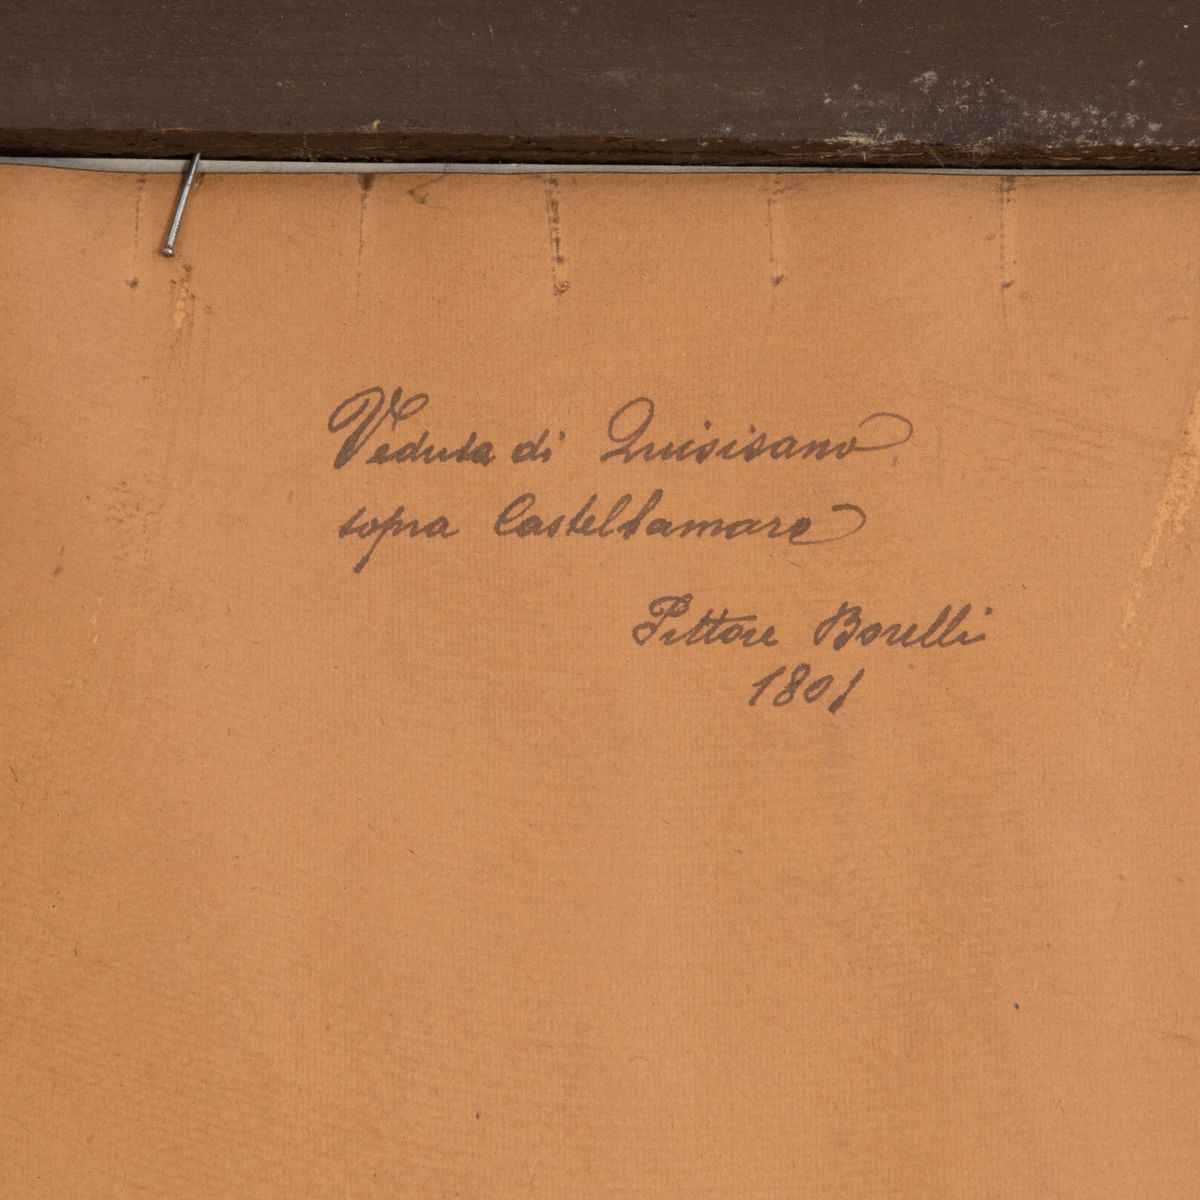 Veduta di Quisisano
sopra Castellamare
Pittore Borelli
1801